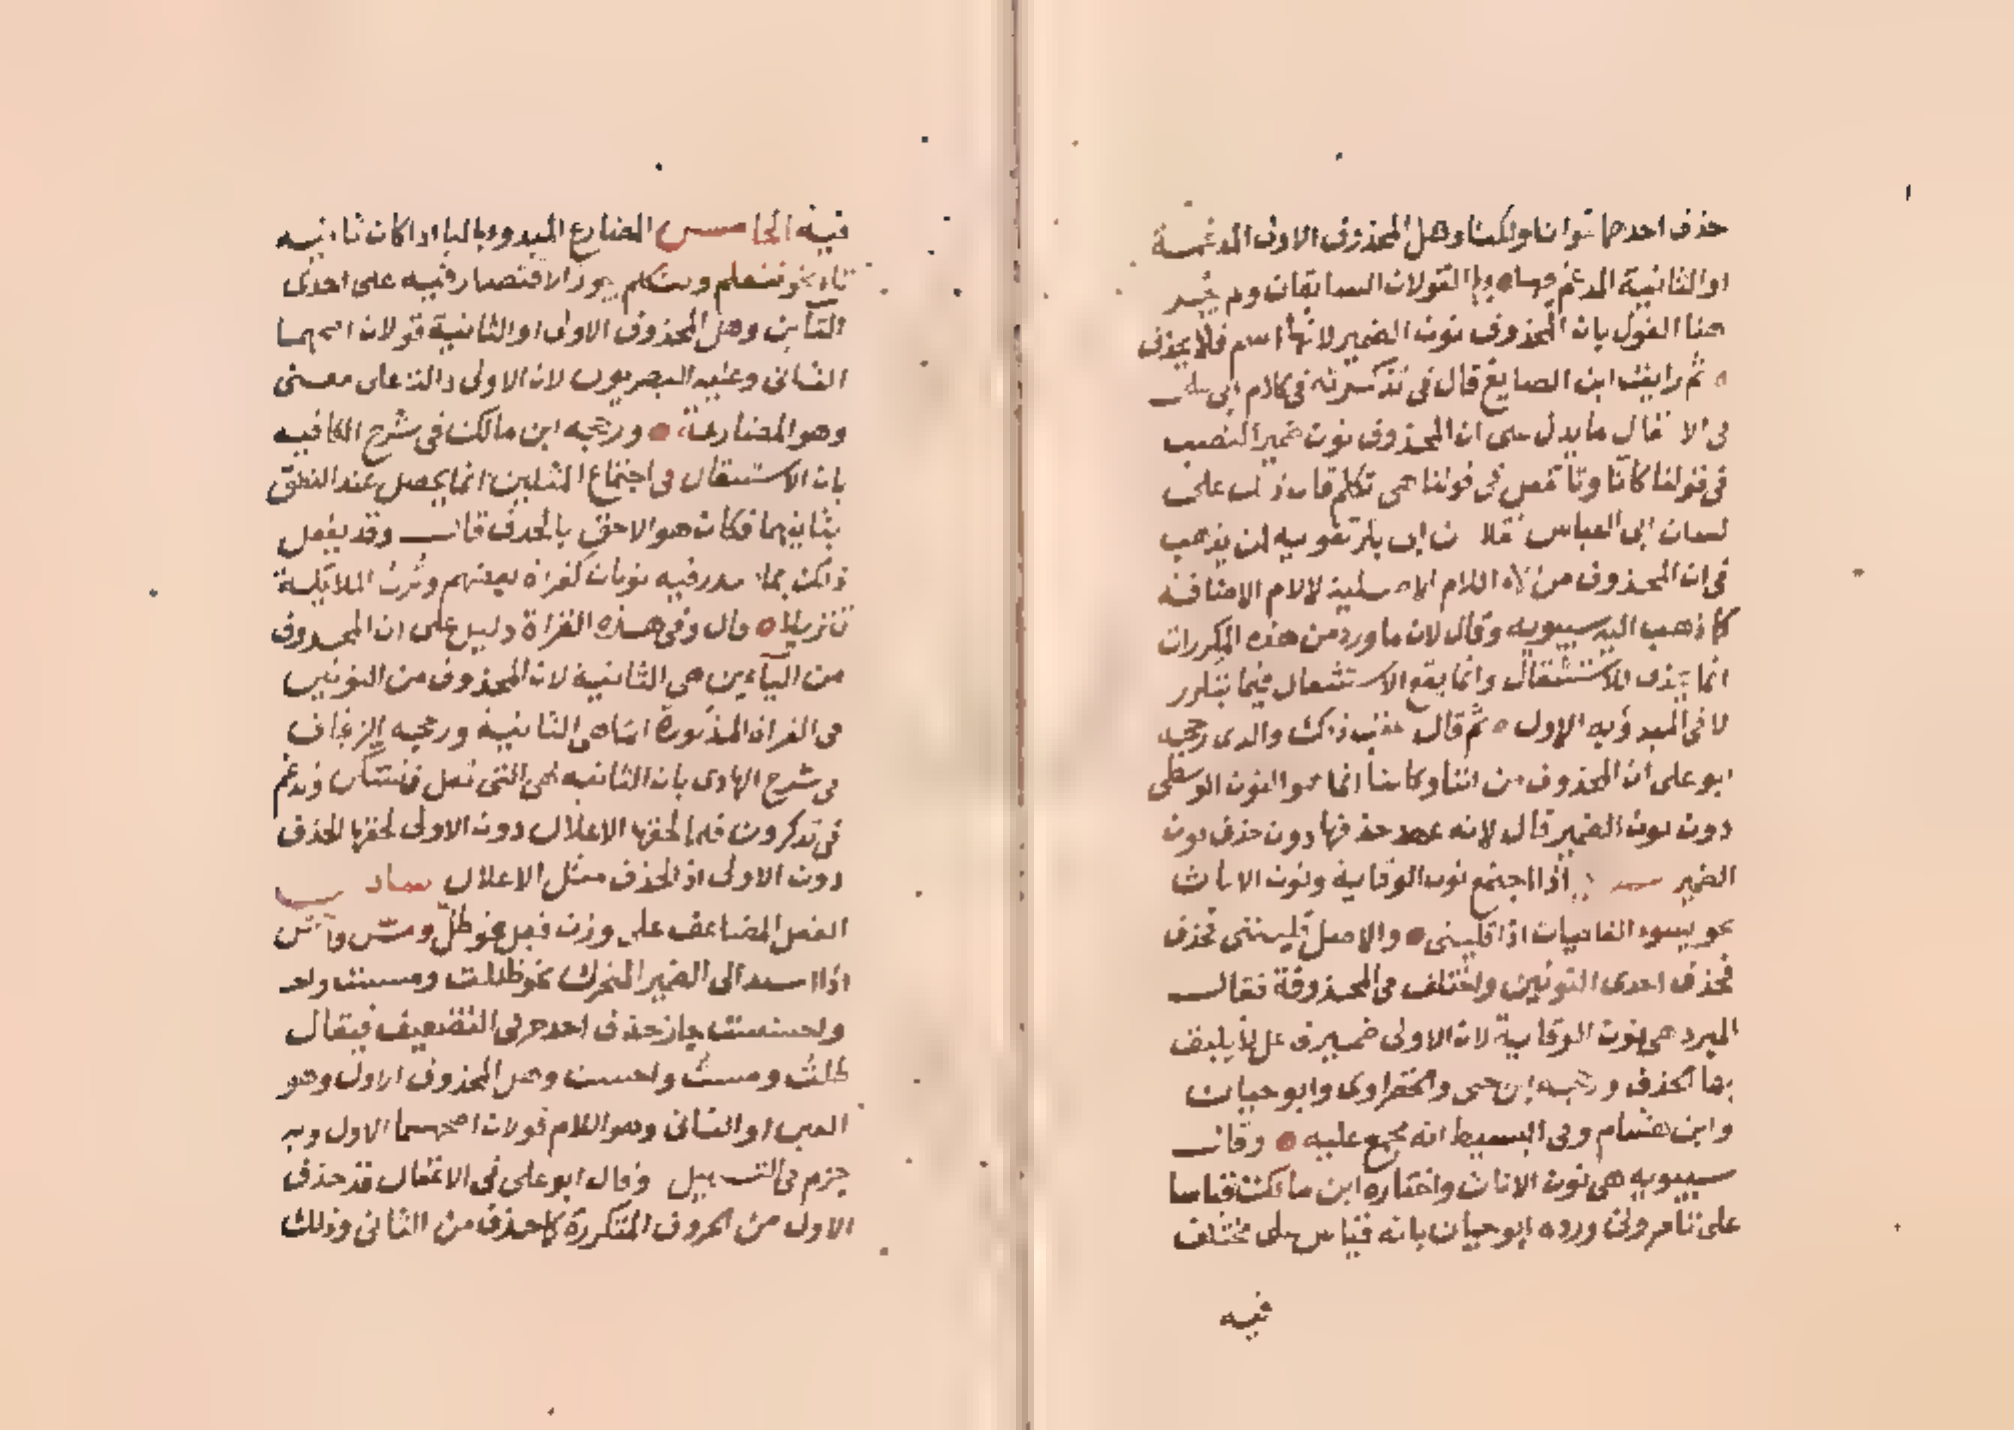 حذف احدهما نحو انا ولكنا وهل المحذوف الاولى المدغمة
او الثانية المدغم فيها القولان السابقان ولم يجر
هنا القول بان المحذوف نون الضمير لانها اسم فلا يحذف
ثم رايت ابن الصايغ قال في تذكرته في كلام ابي على
فى الاغفال ما يدل على ان المحذوف نون ضمير النصب
في قولنا كانا وتا تفعل في قولنا هي تكلم قال ذلك على
لسان ابى العباس نقلا ان يذهب
في ان المحذوف من لاه اللام الاصلية لا لام الاضافة
كما ذهب اليه سيبويه وقال لان ما ورد من هذه المكررات
انما يحذف للاستثقال وانما يقع الاستثقال فيما يتكرر
لا فى المبدوء به الاول ثم قال عقب ذلك والذى رجحه
ابو على ان المحذوف من اننا وكاننا انما هو النون الوسطى
دون نون الضمير قال لانه عهد حذفها دون حذف نون
الضمير اذا اجتمع نون الوقاية ونون الاناث
نحو يسوء الفاليات اذا فلينى والاصل فليننى فحذف
فحذف احدى النونين واختلف فى المحذوفة فقال
المبرد هى نون الوقاية لان الاولى ضمير فاعل لا يليق
بها الحذف ورجحه ابن جنى والخضراوى وابو حيان
وابن هشام وفى البسيط انه مجمع عليه وقال
سيبويه هى نون الاناث واختاره ابن مالك قياسا
على تامرونى ورده ابو حيان بانه قياس على مختلف
فيه
فيه الخامس المضارع المبدوء بالتا اذا كان ثانيه
تاء نحو تتعلم وتتكلم يجوز الاقتصار فيه على احدى
التاءين وهل المحذوف الاولى او الثانية قولان اصحهما
الثانى وعليه البصريون لان الاولى دالة على معنى
وهو المضارعة ورجحه ابن مالك في شرح الكافيه
بان الاستثقال فى اجتماع المثلين انما يحصل عند النطق
بثانيهما فكان هو الاحق بالحذف قال وقد يفعل
ذلك بما صدر فيه نونان كقراة بعضهم ونزل الملائكة
تنزيلا قال وفى هذه القراة دليل على ان المحذوف
من التاءين هى الثانية لان المحذوف من النونين
فى القراة المذكورة انما هى الثانية ورجحه الزنجاني
فى شرح الهادى بان الثانيه هي التى تعل فتسكن وتدغم
في تذكرون فلما لحقها الاعلال دون الاولى لحقها الحذف
دون الاولى اذ الحذف مثل الاعلال السادس
الفعل المضاعف على وزن فعل نحو ظل ومس واحس
اذا اسند الى الضمير المتحرك نحو ظللت ومسست
واحسست جاز حذف احد حرفى التضعيف فيقال
ظلت ومست واحست وهل المحذوف الاول وهو
العين او الثانى وهو اللام قولان اصحهما الاول وبه
جزم في التسهيل وقال ابو على في الاغفال قد حذف
الاول من الحروف المتكررة كما حذف من الثانى وذلك